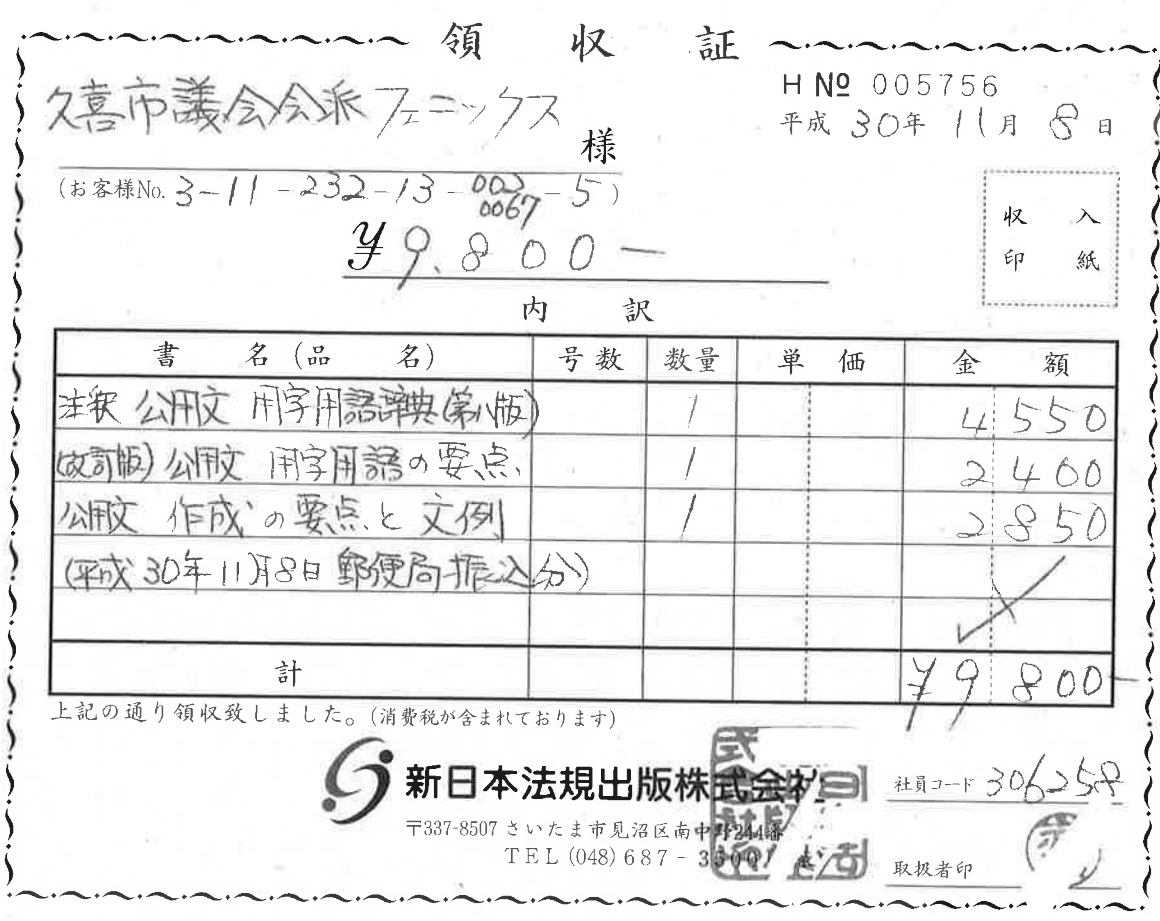 領収証
H No 005756
平成 30年 11月 8日
久喜市議会会派フェニックス 様
(お客様No. 3-11-232-13-002-5)
0067
¥9,800-
内訳
書名(品名) 号数 数量 単価 金額
注釈 公用文 用字用語辞典(第八版) 1 4550
(改訂版)公用文 用字用語の要点 1 2400
公用文 作成の要点と文例 1 2850
(平成30年11月8日 郵便局振込分)
計 ¥9800-
上記の通り領収致しました。(消費税が含まれております)
収入
印紙
新日本法規出版株式会社
〒337-8507 さいたま市見沼区南中野244番
TEL (048) 687-
社員コード 306258
取扱者印